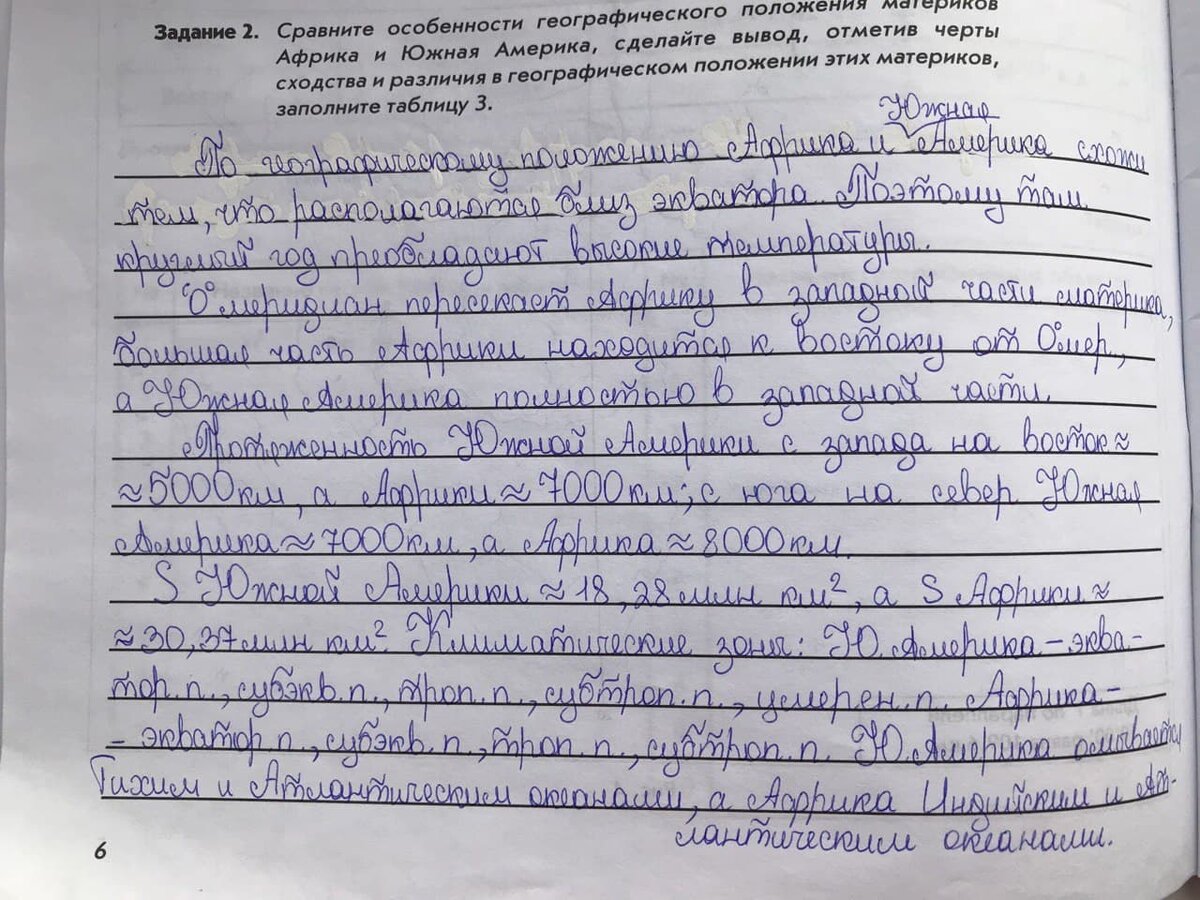 Задание 2. Сравните особенности географического положения материков
Африка и Южная Америка, сделайте вывод, отметив черты
сходства и различия в географическом положении этих материков,
заполните таблицу 3.
Южная
По географическому положению Африка и Америка схожи
тем, что располагаются близ экватора. Поэтому там
круглый год преобладают высокие температуры.
0° меридиан пересекает Африку в западный части материка,
большая часть Африки находится к востоку от 0°мер.,
а Южная Америка полностью в западной части.
Протяженность Южной Америки с запада на восток ≈
≈ 5000км, а Африки ≈ 7000км; с юга на север Южная
Америка ≈ 7000км, а Африка ≈ 8000км.
S Южной Америки ≈ 18,28 млн км², а S Африки ≈
≈ 30,37 млн км². Климатические зоны: Ю. Америка – эква-
тор. п., субэкв. п., троп. п., субтроп. п., умерен. п. Африка –
– экватор. п., субэкв. п., троп. п., субтроп. п. Ю. Америка омывается
Тихим и Атлантическим океанами, а Африка Индийским и Ат-
лантическим океанами.
6